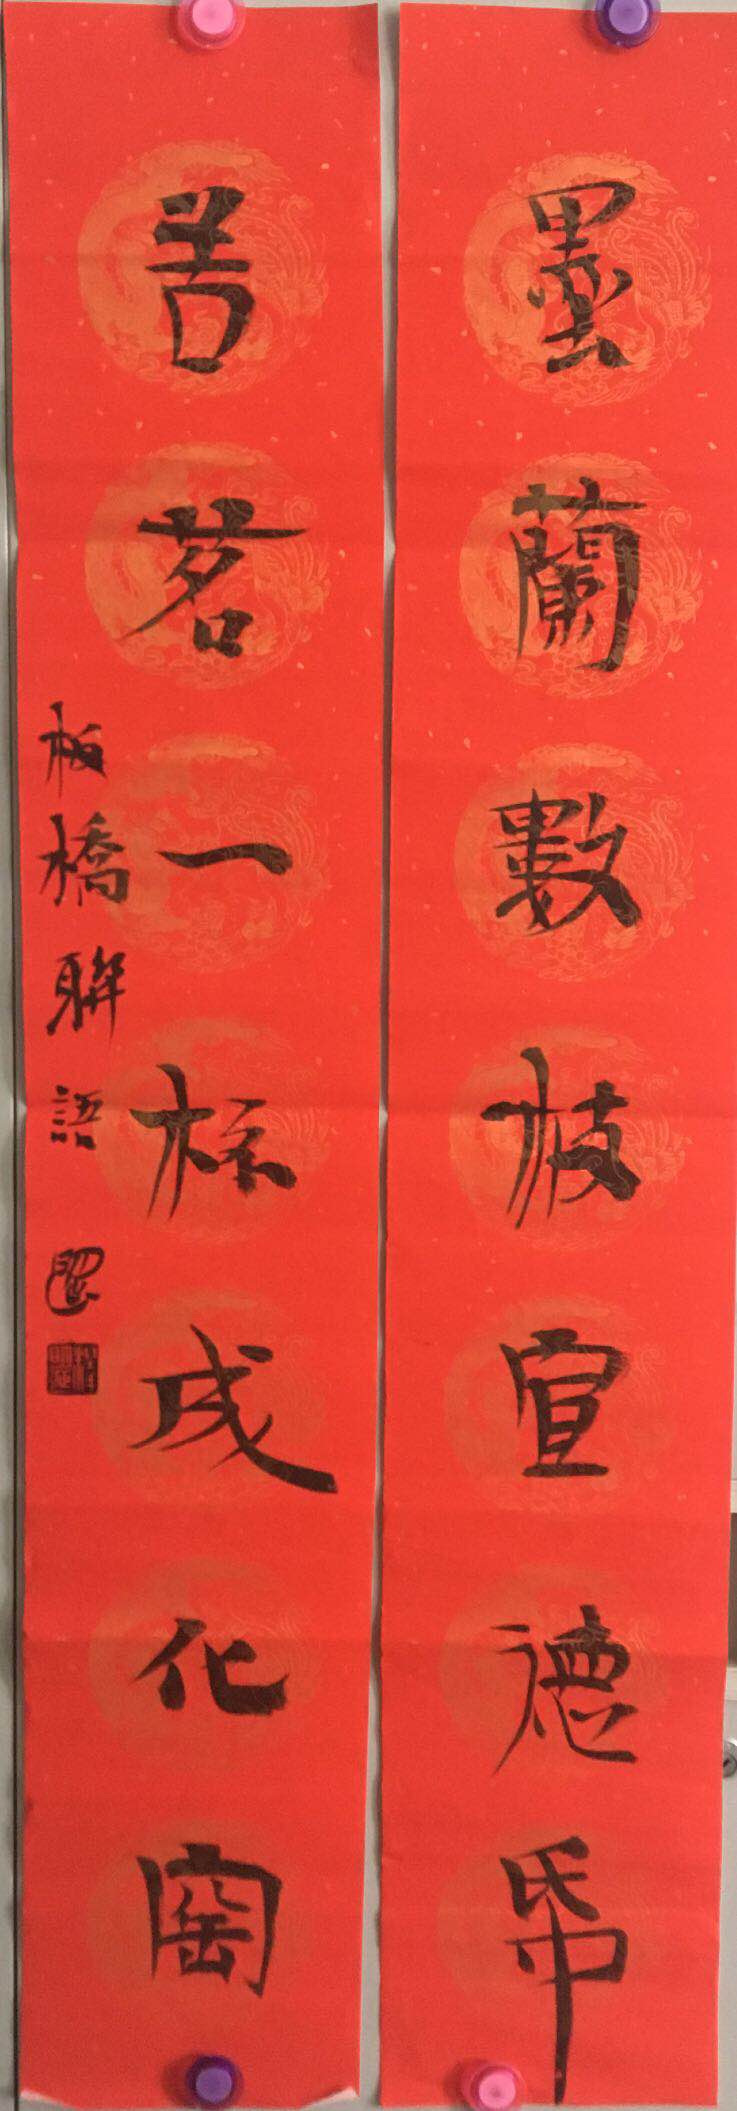 墨蘭數枝宣德帋
苦茗一杯成化窑
板橋聯語